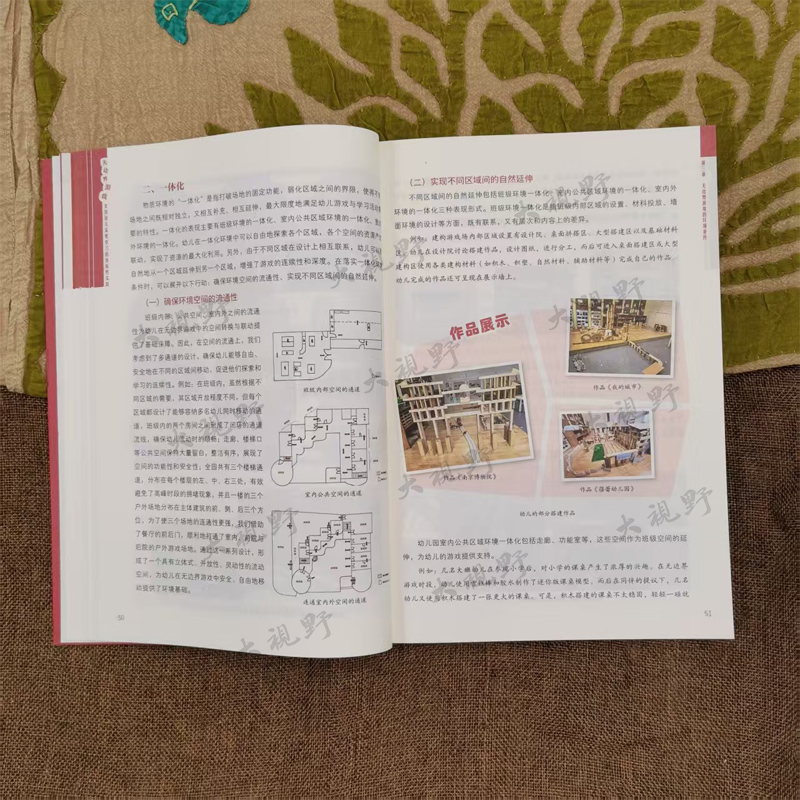 二、一体化
物质环境的“一体化”是指打破场地的固定功能，弱化区域之间的界限，使得不同
场地之间既相对独立，又相互补充、相互延伸，最大限度地满足幼儿游戏与学习活动需
要的特性。一体化的表现主要有班级环境的一体化、室内公共环境的一体化、室内
外环境的一体化。幼儿在一体化环境中可以自由地探索各个区域，各个空间的资源产生
联动，实现了资源的最大化利用。另外，由于不同区域在设计上相互联系，幼儿可以
自然地从一个区域延伸到另一个区域，增强了游戏的连续性和深度。在落实一体化
条件时，可以展开以下行动：确保环境空间的流通性、实现不同区域间的自然延伸。
（一）确保环境空间的流通性
班级内部、公共空间、室内外之间的流通
性为幼儿在无边界游戏中的空间转换与联动提
供了基础保障。因此，在空间的流通上，我们
考虑到了多通道的设计，确保幼儿能够自由、
安全地在不同的区域间移动，促进他们探索和
学习的连续性。例如：在班级内，虽然根据不
同区域的需要，其区域开放程度不同，但每个
区域都设计了能够容纳多名幼儿同时移动的通
道，班级内的两个房间之间形成了闭环的通道
流线，确保幼儿流动时的顺畅；走廊、楼梯口
等公共空间保持大量留白，整洁有序，展现了
空间的功能性和安全性；全园共有三个楼梯通
道，分布在每个楼层的左、中、右三处，有效
避免了高峰时段的拥堵现象，并且一楼的三个
户外场地分布在主体建筑的前、侧、后三个方
位，为了使三个场地的连通性更强，我们借助
了餐厅的前后门，顺利地打通了室内、前院与
后院的户外游戏场地。通过这一系列设计，形
成了一个具有立体式、开放性、灵动性的流动
空间，为幼儿在无边界游戏中安全、自由地移
动提供了环境基础。
班级内部空间的通道
室内公共空间的通道
连通室内外空间的通道
50
（二）实现不同区域间的自然延伸
不同区域间的自然延伸包括班级环境一体化、室内公共区域环境的一体化、室内外
环境的一体化三种表现形式。班级环境一体化是指班级内部区域的设置、材料投放、墙
面环境的设计等方面，既有联系，又有层次和内容上的差异。
例如：建构游戏场内部区域设置有设计院、桌面拼搭区、大型搭建区以及基础材料
区。幼儿在设计院讨论搭建作品，设计图纸，进行分工，而后可进入桌面搭建区或大型
建构区使用各类建构材料（如积木、积塑、自然材料、辅助材料等）完成自己的作品。
幼儿完成的作品还可呈现在展示墙上。
作品展示
作品《南京博物院》
作品《我的城市》
作品《蓓蕾幼儿园》
幼儿的部分搭建作品
幼儿园室内公共区域环境一体化包括走廊、功能室等，这些空间作为班级空间的延
伸，为幼儿的游戏提供支持。
例如：几名大班幼儿在参观小学后，对小学的课桌产生了浓厚的兴趣。在无边界
游戏时段，幼儿使用雪糕棒和胶水制作了迷你版课桌模型，而后在同伴的提议下，几名
幼儿又使用积木搭建了一张更大的课桌。可是，积木搭建的课桌不太稳固，轻轻一碰就
51
大视野
大视野
大视野
大视野
大视野
大视野
大视野
大视野